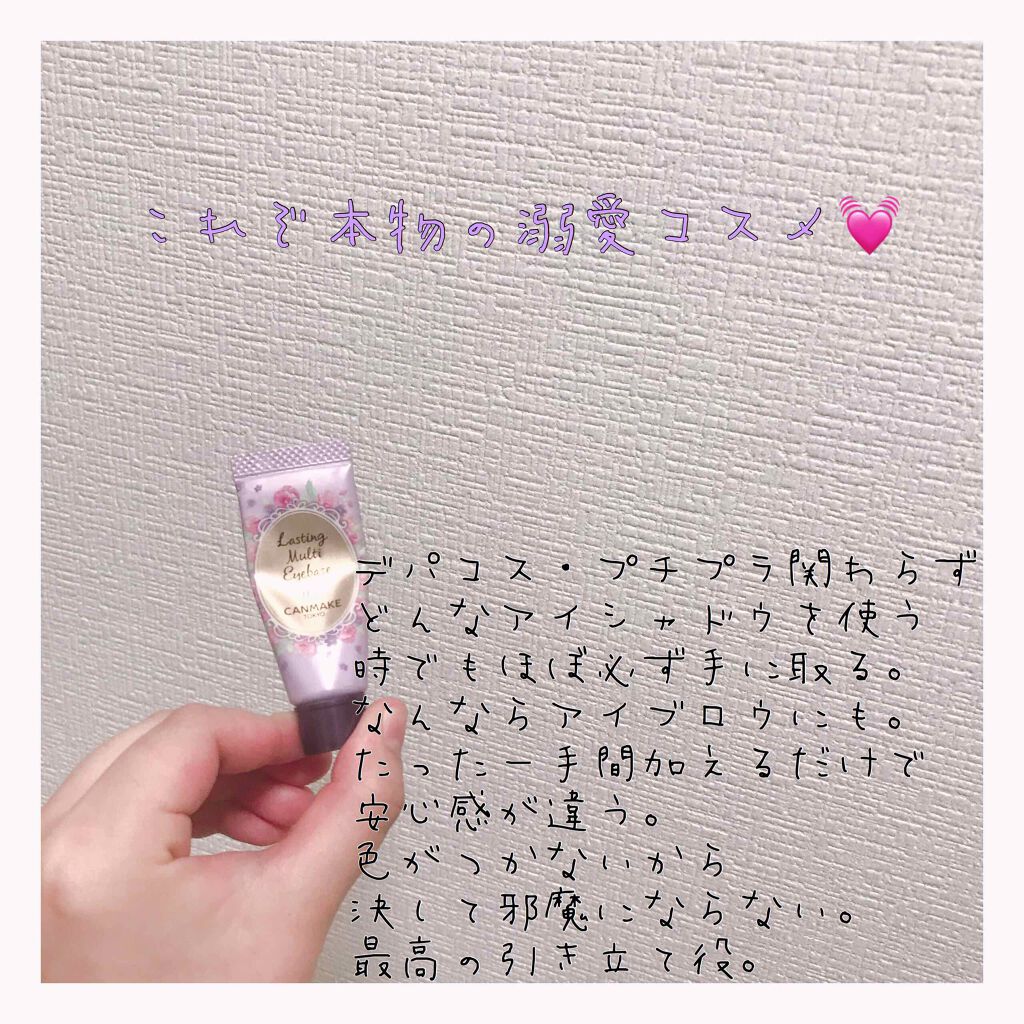 これぞ本物の溺愛コスメ💓
Lasting
Multi
Eyebase
CANMAKE
TOKYO
デパコス・プチプラ関わらず
どんなアイシャドウを使う
時でもほぼ必ず手に取る。
なんならアイブロウにも。
たった一手間加えるだけで
安心感が違う。
色がつかないから
決して邪魔にならない。
最高の引き立て役。